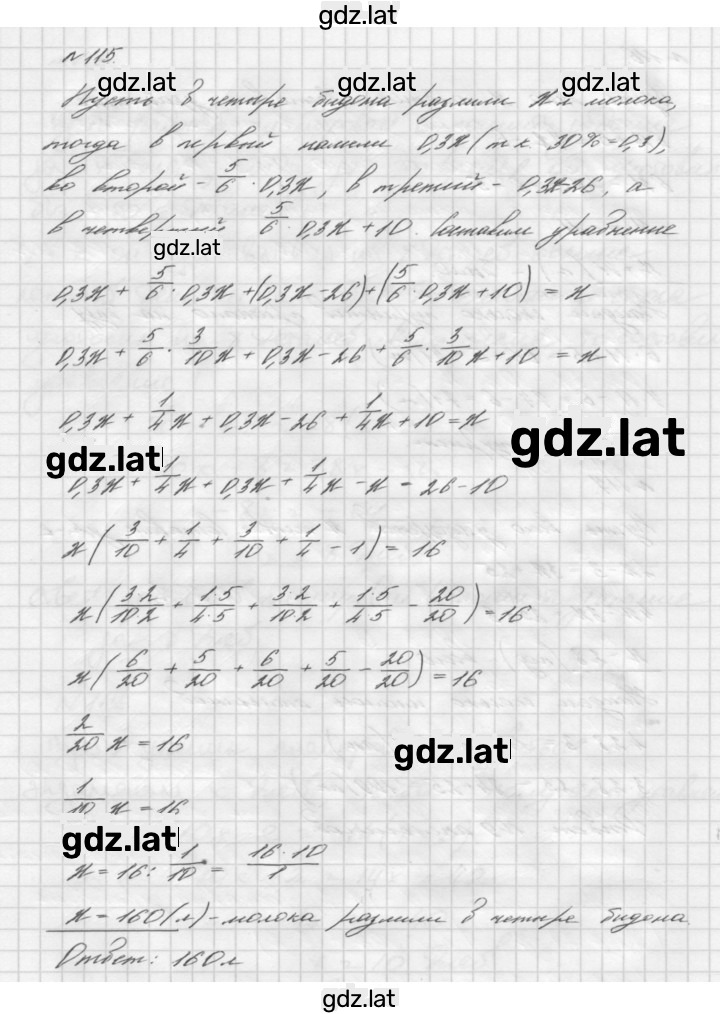 gdz.lat
№ 115.
gdz.lat gdz.lat gdz.lat
Пусть в четыре бидона разлили x л молока,
тогда в первый налили 0,3x (т к 30% = 0,3),
во второй – 5/6 · 0,3x, в третий – 0,3x-26, а
в четвертый 5/6 · 0,3x + 10. Составим уравнение
gdz.lat
0,3x + 5/6 · 0,3x + (0,3x - 26) + (5/6 · 0,3x + 10) = x
0,3x + 5/6 · 3/10 x + 0,3x - 26 + 5/6 · 3/10 x + 10 = x
0,3x + 1/4 x + 0,3x - 26 + 1/4 x + 10 = x
gdz.lat
gdz.lat
0,3x + 1/4 x + 0,3x + 1/4 x - x = 26 - 10
x (3/10 + 1/4 + 3/10 + 1/4 - 1) = 16
x (3·2/10·2 + 1·5/4·5 + 3·2/10·2 + 1·5/4·5 - 20/20) = 16
x (6/20 + 5/20 + 6/20 + 5/20 - 20/20) = 16
2/20 x = 16
gdz.lat
1/10 x = 16
gdz.lat
x = 16 : 1/10 = 16·10/1
x = 160 (л) – молока разлили в четыре бидона.
Ответ: 160 л
gdz.lat